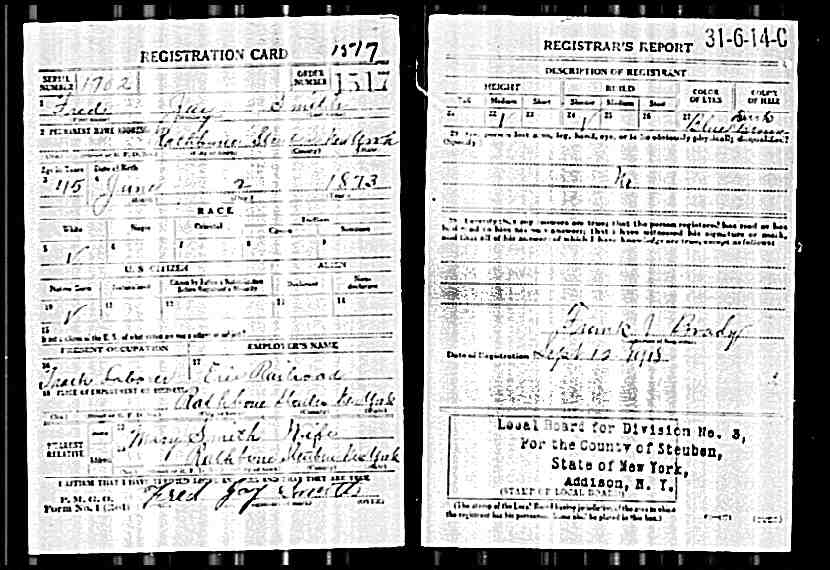 REGISTRATION CARD 1517
SERIAL NUMBER 1702 ORDER NUMBER 1517
1 Fred Jay Smith
2 PERMANENT HOME ADDRESS
Rathbone Steuben New York
Age in Years Date of Birth
3 45 4 June 2 1873
RACE
White Negro Oriental Indian
Citizen
5 √ 6 7 8 9
U.S. CITIZEN ALIEN
Native Born Naturalized Citizen by Father's Naturalization Before Registrant's Majority Declarant Non-declarant
10 √ 11 12 13 14
15
If not a citizen of the U.S. of what nation are you a citizen or subject?
PRESENT OCCUPATION EMPLOYER'S NAME
16 Track Laborer 17 Erie Railroad
18 PLACE OF EMPLOYMENT OR BUSINESS
Rathbone Steuben New York
NEAREST RELATIVE Name 19 Mary Smith Wife
Address 20 Rathbone Steuben New York
I AFFIRM THAT I HAVE VERIFIED ABOVE ANSWERS AND THAT THEY ARE TRUE
P. M. G. O.
Form No. 1 (Red) Fred Jay Smith (OVER)
REGISTRAR'S REPORT 31-6-14-C
DESCRIPTION OF REGISTRANT
HEIGHT BUILD COLOR OF EYES COLOR OF HAIR
Tall Medium Short Slender Medium Stout
21 22 √ 23 24 √ 25 26 27 Blue
29 Has person lost arm, leg, hand, eye, or is he obviously physically disqualified?
(Specify.)
No
30 I certify that my answers are true; that the person registered has read or has
had read to him his own answers; that I have witnessed his signature or mark,
and that all of his answers of which I have knowledge are true, except as follows:
Frank J Brady
Date of Registration Sept 12 1918
Local Board for Division No. 3,
For the County of Steuben,
State of New York,
Addison, N. Y.
(STAMP OF LOCAL BOARD)
(The stamp of the Local Board having jurisdiction of the area in which
the registrant has his permanent home shall be placed in this box.)